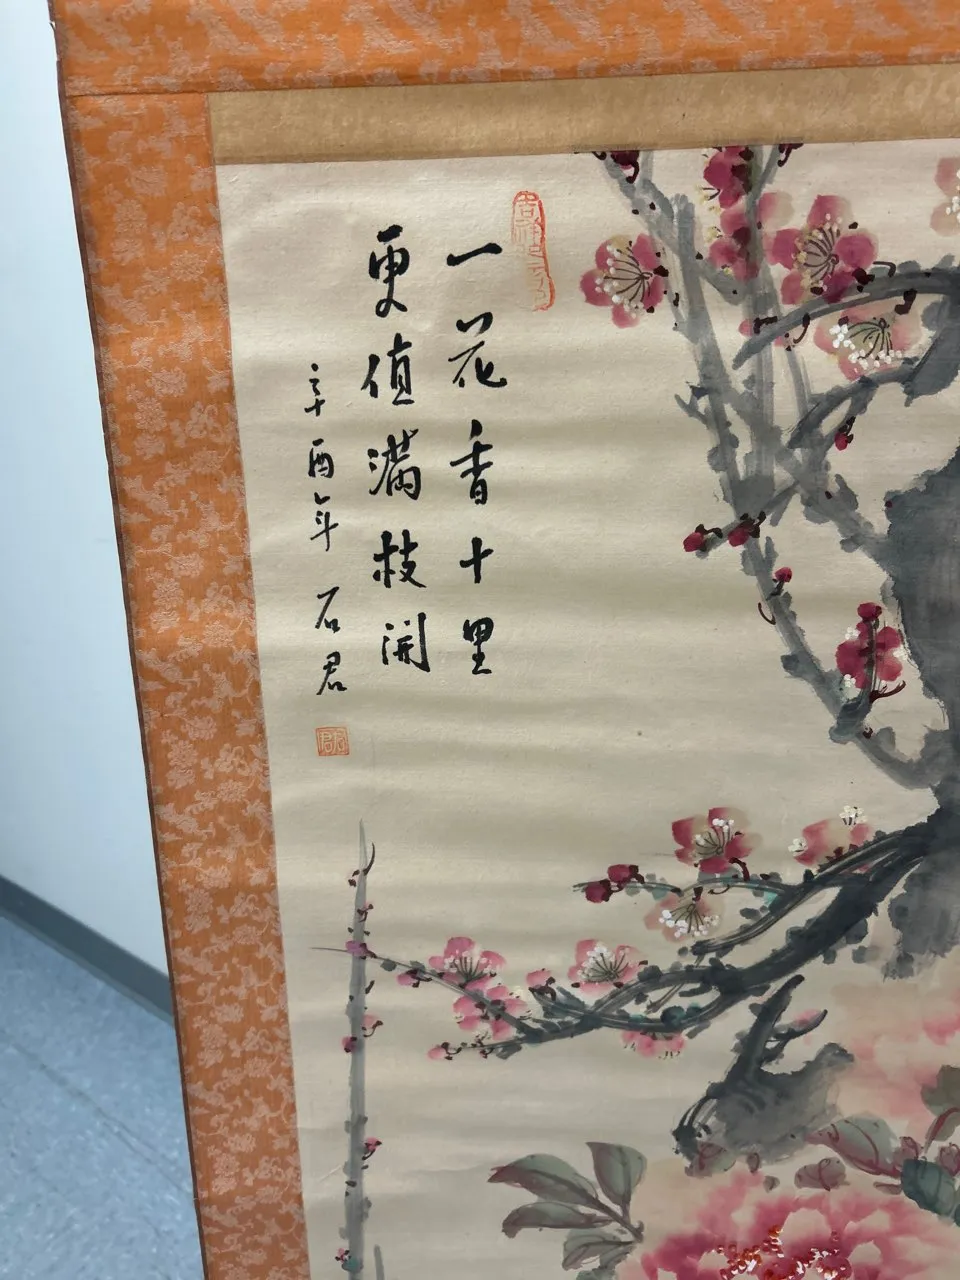 一花香十里
更值滿枝開
辛酉年 石君